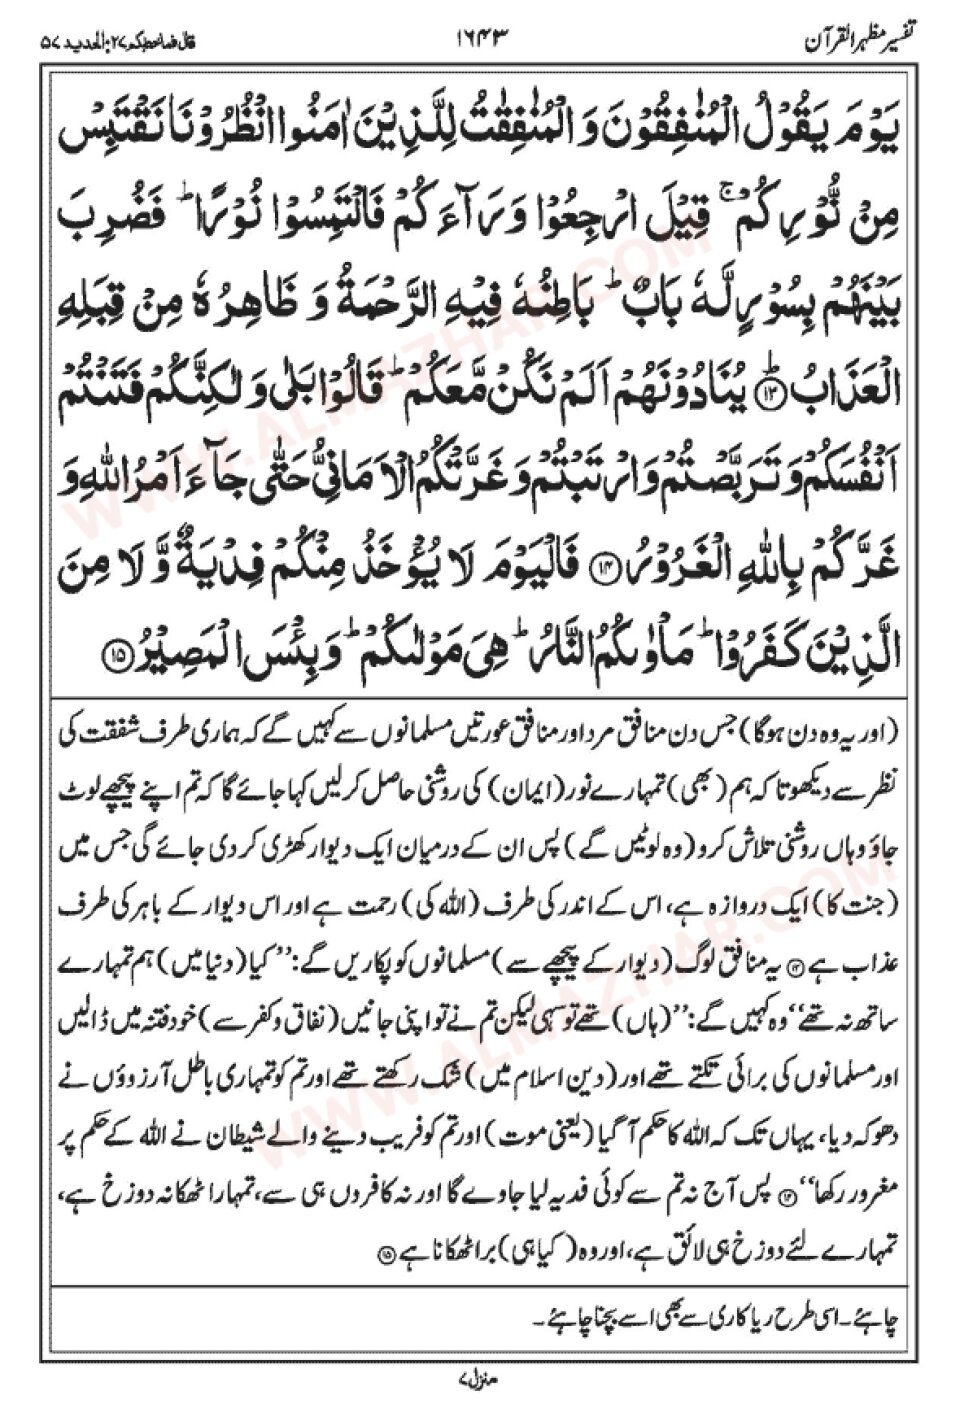 تفسیر مظہر القرآن
۱۶۴۳
قال فما خطبکم ۲۷: الحدید ۵۷
یَوْمَ یَقُوْلُ الْمُنٰفِقُوْنَ وَ الْمُنٰفِقٰتُ لِلَّذِیْنَ اٰمَنُوا انْظُرُوْنَا نَقْتَبِسْ
مِنْ نُّوْرِكُمْ ۚ قِیْلَ ارْجِعُوْا وَرَآءَكُمْ فَالْتَمِسُوْا نُوْرًا ؕ فَضُرِبَ
بَیْنَهُمْ بِسُوْرٍ لَّهٗ بَابٌ ؕ بَاطِنُهٗ فِیْهِ الرَّحْمَةُ وَ ظَاهِرُهٗ مِنْ قِبَلِهِ
الْعَذَابُ ؕ﴿۱۳﴾ یُنَادُوْنَهُمْ اَلَمْ نَكُنْ مَّعَكُمْ ؕ قَالُوْا بَلٰی وَ لٰكِنَّكُمْ فَتَنْتُمْ
اَنْفُسَكُمْ وَ تَرَبَّصْتُمْ وَ ارْتَبْتُمْ وَ غَرَّتْكُمُ الْاَمَانِیُّ حَتّٰی جَآءَ اَمْرُ اللّٰهِ وَ
غَرَّكُمْ بِاللّٰهِ الْغَرُوْرُ ﴿۱۴﴾ فَالْیَوْمَ لَا یُؤْخَذُ مِنْكُمْ فِدْیَةٌ وَّ لَا مِنَ
الَّذِیْنَ كَفَرُوْا ؕ مَاْوٰىكُمُ النَّارُ ؕ هِیَ مَوْلٰىكُمْ ؕ وَ بِئْسَ الْمَصِیْرُ ﴿۱۵﴾
(اور یہ وہ دن ہوگا) جس دن منافق مرد اور منافق عورتیں مسلمانوں سے کہیں گے کہ ہماری طرف شفقت کی
نظر سے دیکھو تاکہ ہم (بھی) تمہارے نور (ایمان) کی روشنی حاصل کرلیں کہا جائے گا کہ تم اپنے پیچھے لوٹ
جاؤ وہاں روشنی تلاش کرو (وہ لوٹیں گے) پس ان کے درمیان ایک دیوار کھڑی کردی جائے گی جس میں
(جنت کا) ایک دروازہ ہے، اس کے اندر کی طرف (اللہ کی) رحمت ہے اور اس دیوار کے باہر کی طرف
عذاب ہے ﴿۱۳﴾ یہ منافق لوگ (دیوار کے پیچھے سے) مسلمانوں کو پکاریں گے: ’’کیا (دنیا میں) ہم تمہارے
ساتھ نہ تھے‘‘ وہ کہیں گے: ’’(ہاں) تھے تو سہی لیکن تم نے تو اپنی جانیں (نفاق و کفر سے) خود فتنہ میں ڈالیں
اور مسلمانوں کی برائی تکتے تھے اور (دین اسلام میں) شک رکھتے تھے اور تم کو تمہاری باطل آرزوؤں نے
دھوکہ دیا، یہاں تک کہ اللہ کا حکم آگیا (یعنی موت) اور تم کو فریب دینے والے شیطان نے اللہ کے حکم پر
مغرور رکھا‘‘ ﴿۱۴﴾ پس آج نہ تم سے کوئی فدیہ لیا جاوے گا اور نہ کافروں ہی سے، تمہارا ٹھکانہ دوزخ ہے،
تمہارے لئے دوزخ ہی لائق ہے، اور وہ (کیا ہی) برا ٹھکانا ہے ﴿۱۵﴾
چاہئے۔ اسی طرح ریاکاری سے بھی اسے بچنا چاہئے۔
منزل ۷
WWW.ALMAZHAR.COM
WWW.ALMAZHAR.COM